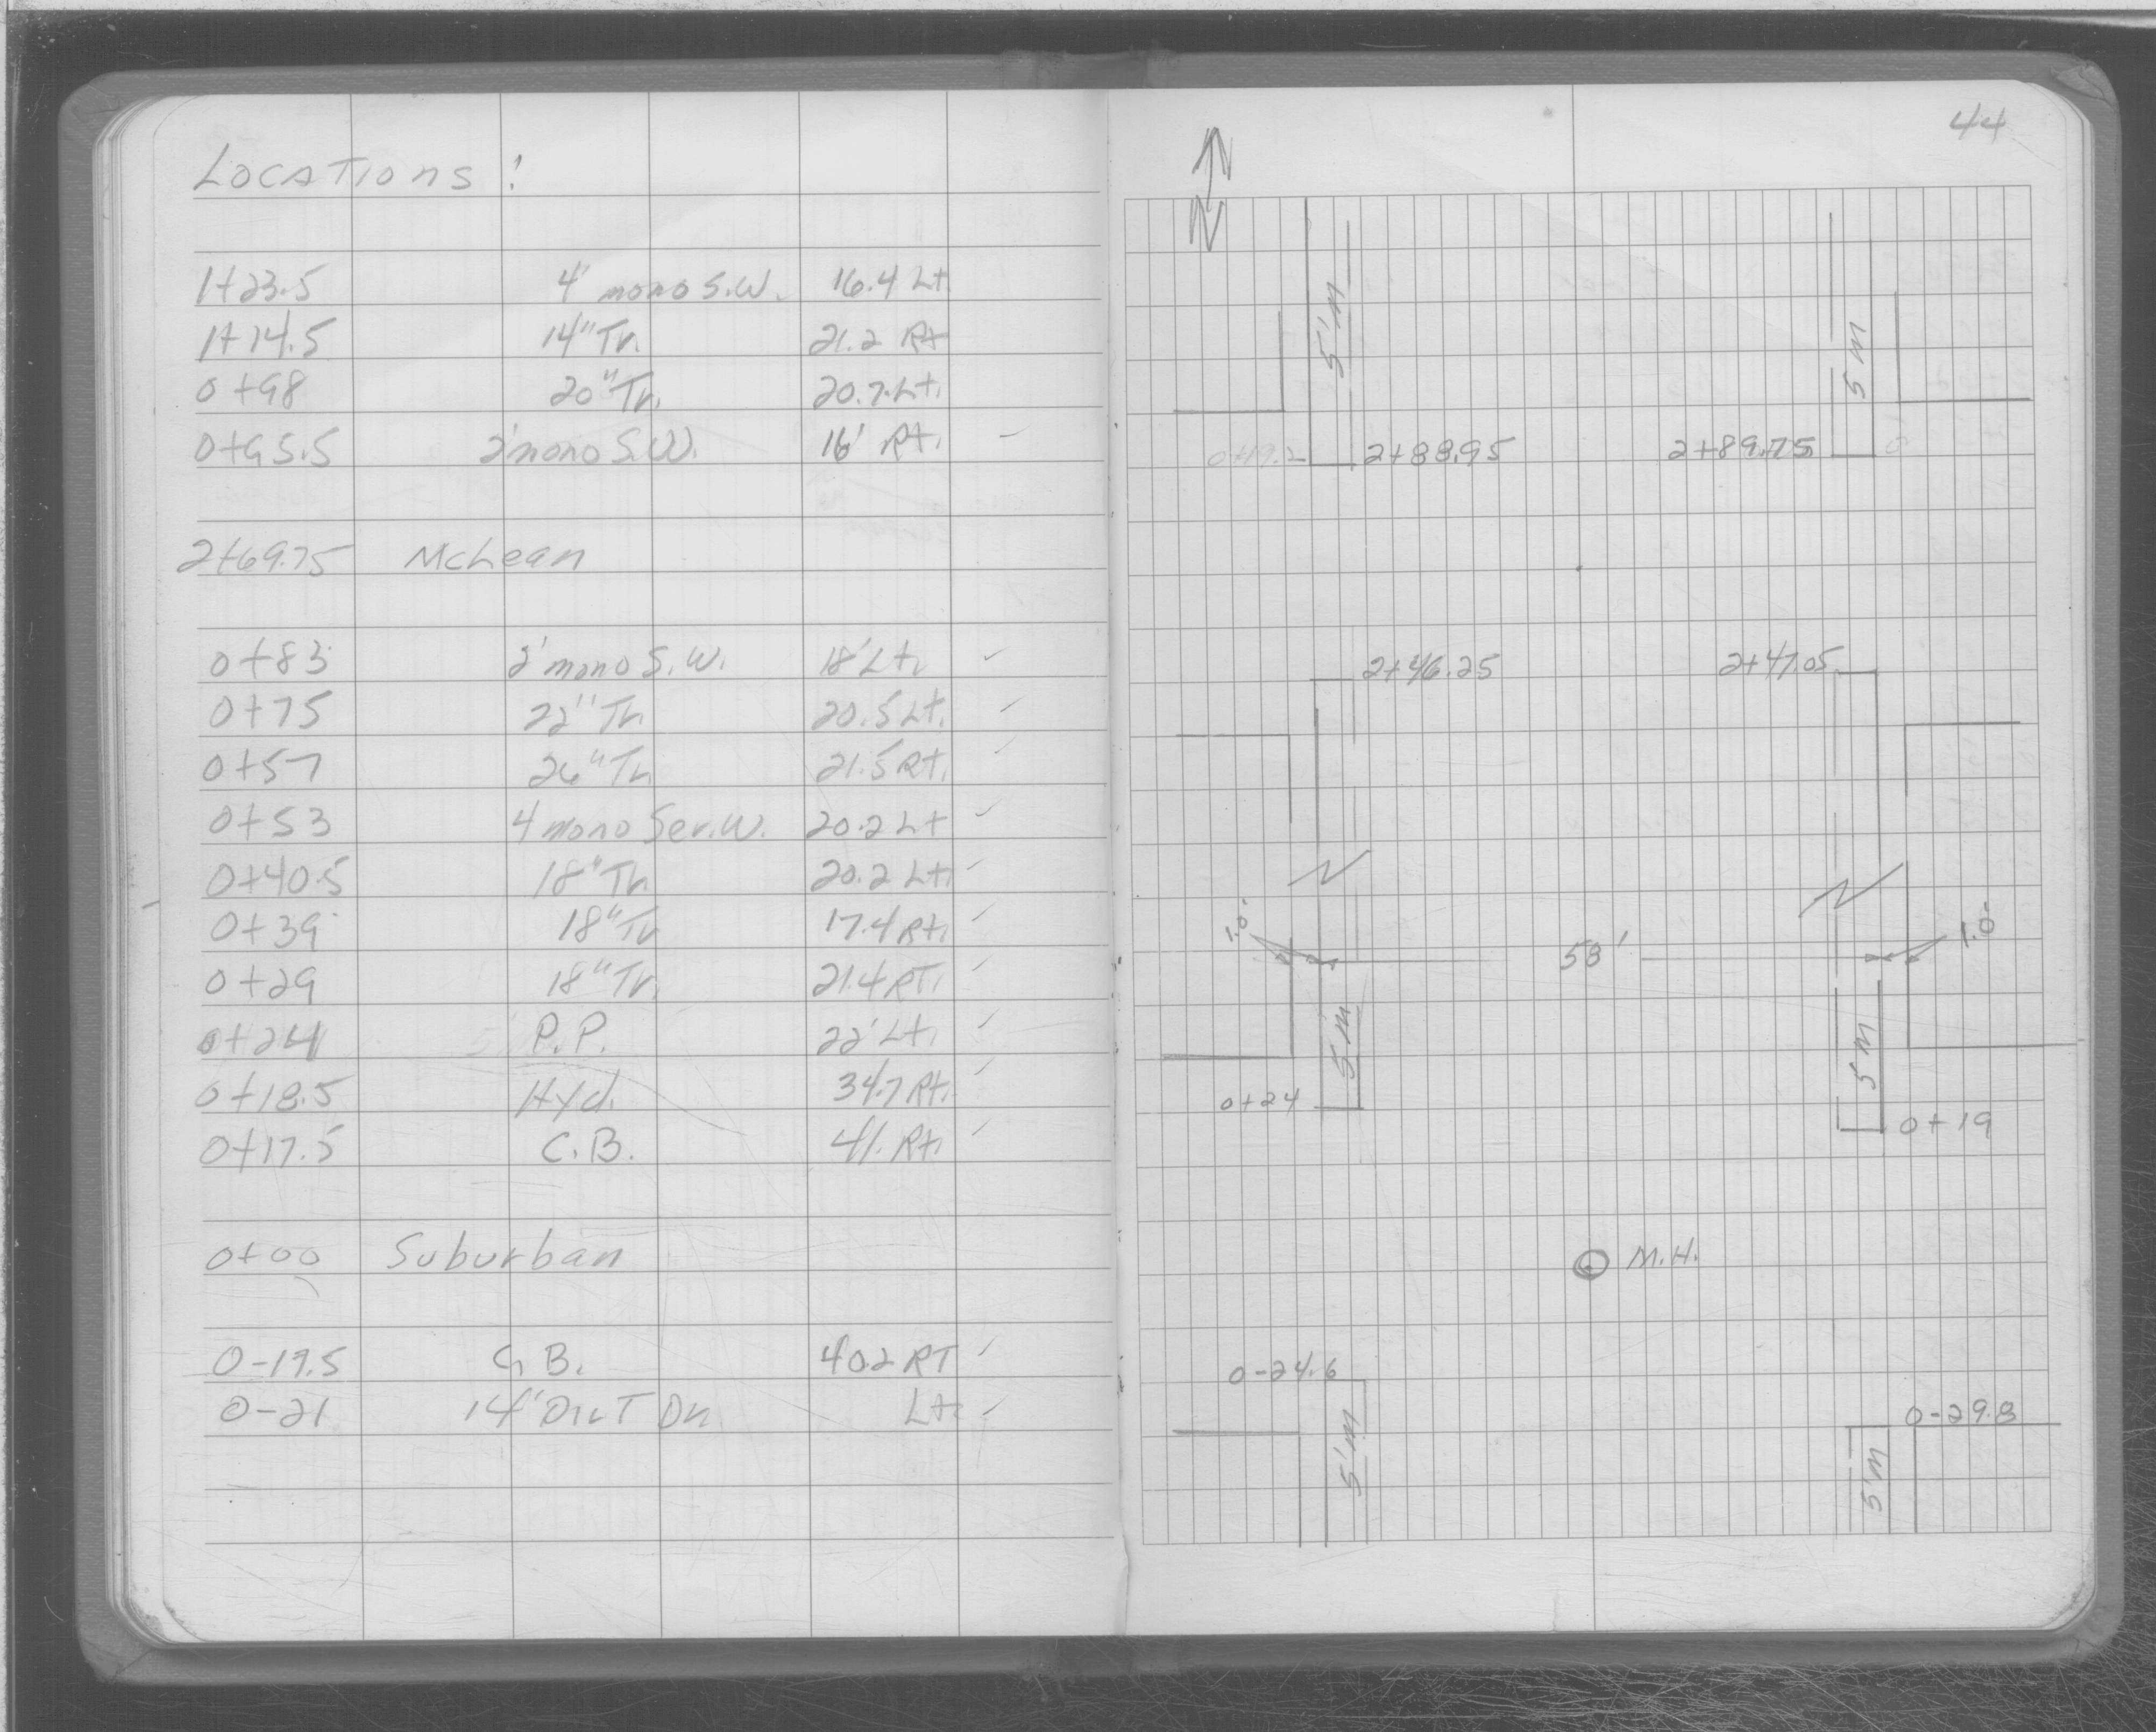 LOCATIONS :
1+23.5 4' mono S.W. 16.4 Lt.
1+14.5 14" Tr. 21.2 Rt
0+98 20" Tr. 20.7 Lt.
0+95.5 2' mono S.W. 16' Rt. -
2+69.75 McLean
0+83 2' mono S.W. 18' Lt. ✓
0+75 22" Tr. 20.5 Lt. ✓
0+57 26" Tr. 21.5 Rt. ✓
0+53 4 mono Ser.W. 20.2 Lt ✓
0+40.5 18" Tr. 20.2 Lt. ✓
0+39 18" Tr 17.4 Rt. ✓
0+29 18" Tr. 21.4 RT. ✓
0+24 P.P. 22' Lt. ✓
0+18.5 Hyd. 34.7 Rt. ✓
0+17.5 C.B. 41. Rt. ✓
0+00 Suburban
0-17.5 C.B. 40.2 RT ✓
0-21 14' Dirt Dr. Lt. ✓
44
N
5'M 5'M
2+88.95 2+89.75
2+46.25 2+47.05
1.0' 58' 1.0'
5'M 5'M
0+24 0+19
M.H.
0-24.6
0-29.8
5'M 5'M